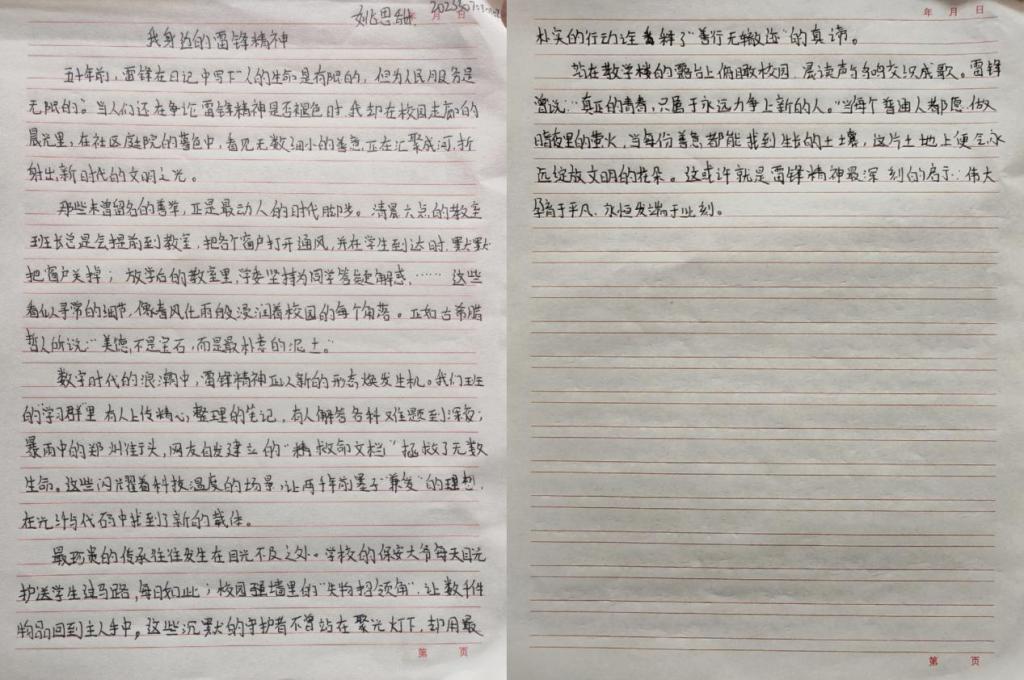 姚思甜
年 月 日
我身边的雷锋精神
五十年前，雷锋在日记中写下"人的生命是有限的，但为人民服务是
无限的"。当人们还在争论雷锋精神是否褪色时，我却在校园走廊的
晨光里，在社区庭院的暮色中，看见无数细小的善意正在汇聚成河，折
射出新时代的文明之光。
那些未曾留名的善举，正是最动人的时代脚步。清晨六点的教室
班长总是会提前到教室，把各个窗户打开通风，并在学生到达时，默默
把窗户关掉；放学后的教室里，学委坚持为同学答题解惑，……这些
看似寻常的细节，像春风化雨般浸润着校园的每个角落。正如古希腊
哲人所说："美德不是宝石，而是最朴素的泥土。"
数字时代的浪潮中，雷锋精神正以新的形态焕发生机。我们班
的"学习群"里有人上传精心整理的笔记，有人解答各科难题到深夜；
暴雨中的郑州街头，网友自发建立的"精救命文档"拯救了无数
生命。这些闪耀着科技温度的场景，让两千年前墨子"兼爱"的理想，
在光纤与代码中找到了新的载体。
最珍贵的传承往往发生在目光不及之处。学校的保安大爷每天目光
护送学生过马路，每日如此；校园强墙里的"失物招领角"，让数千件
物品回到主人手中，这些沉默的守护者不曾站在聚光灯下，却用最
第 页
年 月 日
朴实的行动诠释了"善行无辙迹"的真谛。
站在教学楼的露台上俯瞰校园，晨读声与鸟鸣交织成歌。雷锋
曾说："真正的青春，只属于永远力争上新的人。"当每个普通人都愿做
暗夜里的萤火，当每份善意都能找到生长的土壤，这片土地上便会永
远绽放文明的花朵。这或许就是雷锋精神最深刻的启示：伟大
孕育于平凡，永恒发端于此刻。
第 页